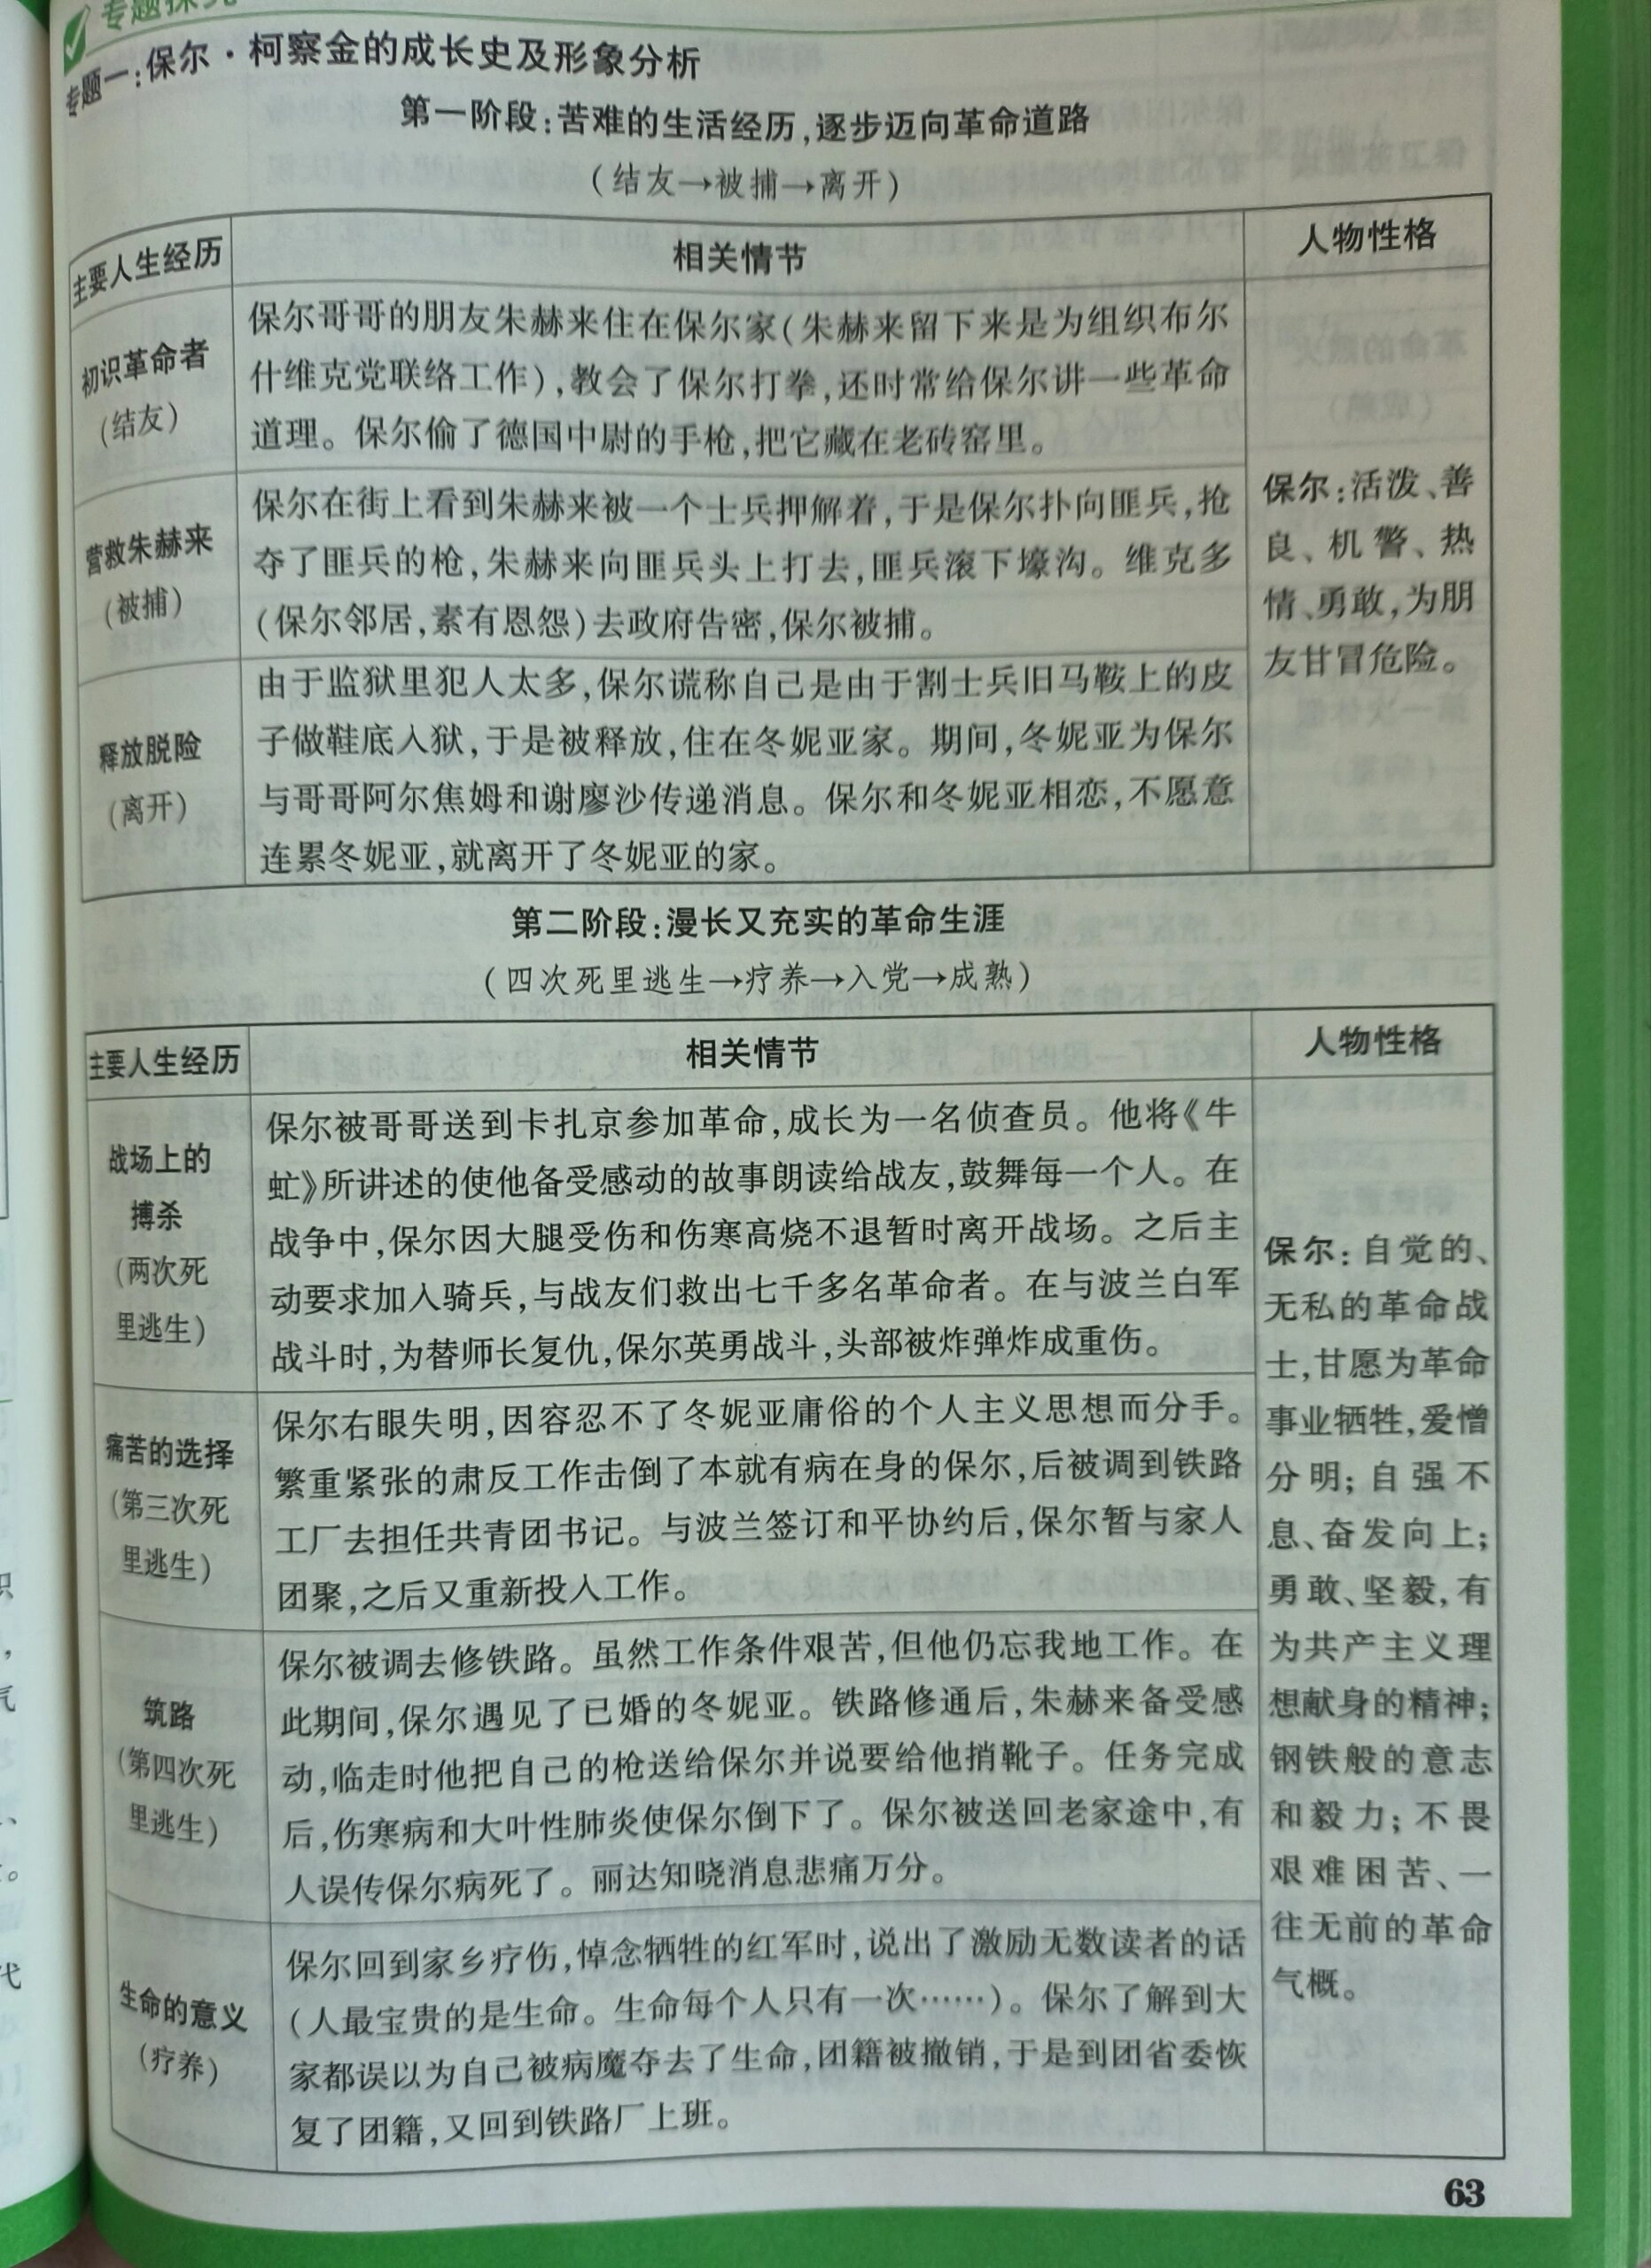 专题探究
专题一:保尔·柯察金的成长史及形象分析
第一阶段:苦难的生活经历,逐步迈向革命道路
(结友→被捕→离开)
主要人生经历
相关情节
人物性格
初识革命者
(结友)
保尔哥哥的朋友朱赫来住在保尔家(朱赫来留下来是为组织布尔
什维克党联络工作),教会了保尔打拳,还时常给保尔讲一些革命
道理。保尔偷了德国中尉的手枪,把它藏在老砖窑里。
营救朱赫来
(被捕)
保尔在街上看到朱赫来被一个士兵押解着,于是保尔扑向匪兵,抢
夺了匪兵的枪,朱赫来向匪兵头上打去,匪兵滚下壕沟。维克多
(保尔邻居,素有恩怨)去政府告密,保尔被捕。
释放脱险
(离开)
由于监狱里犯人太多,保尔谎称自己是由于割士兵旧马鞍上的皮
子做鞋底入狱,于是被释放,住在冬妮亚家。期间,冬妮亚为保尔
与哥哥阿尔焦姆和谢廖沙传递消息。保尔和冬妮亚相恋,不愿意
连累冬妮亚,就离开了冬妮亚的家。
保尔:活泼、善
良、机警、热
情、勇敢,为朋
友甘冒危险。
第二阶段:漫长又充实的革命生涯
(四次死里逃生→疗养→入党→成熟)
主要人生经历
相关情节
人物性格
战场上的
搏杀
(两次死
里逃生)
保尔被哥哥送到卡扎京参加革命,成长为一名侦查员。他将《牛
虻》所讲述的使他备受感动的故事朗读给战友,鼓舞每一个人。在
战争中,保尔因大腿受伤和伤寒高烧不退暂时离开战场。之后主
动要求加入骑兵,与战友们救出七千多名革命者。在与波兰白军
战斗时,为替师长复仇,保尔英勇战斗,头部被炸弹炸成重伤。
痛苦的选择
(第三次死
里逃生)
保尔右眼失明,因容忍不了冬妮亚庸俗的个人主义思想而分手。
繁重紧张的肃反工作击倒了本就有病在身的保尔,后被调到铁路
工厂去担任共青团书记。与波兰签订和平协约后,保尔暂与家人
团聚,之后又重新投入工作。
筑路
(第四次死
里逃生)
保尔被调去修铁路。虽然工作条件艰苦,但他仍忘我地工作。在
此期间,保尔遇见了已婚的冬妮亚。铁路修通后,朱赫来备受感
动,临走时他把自己的枪送给保尔并说要给他捎靴子。任务完成
后,伤寒病和大叶性肺炎使保尔倒下了。保尔被送回老家途中,有
人误传保尔病死了。丽达知晓消息悲痛万分。
生命的意义
(疗养)
保尔回到家乡疗伤,悼念牺牲的红军时,说出了激励无数读者的话
(人最宝贵的是生命。生命每个人只有一次……)。保尔了解到大
家都误以为自己被病魔夺去了生命,团籍被撤销,于是到团省委恢
复了团籍,又回到铁路厂上班。
保尔:自觉的、
无私的革命战
士,甘愿为革命
事业牺牲,爱憎
分明;自强不
息、奋发向上;
勇敢、坚毅,有
为共产主义理
想献身的精神;
钢铁般的意志
和毅力;不畏
艰难困苦、一
往无前的革命
气概。
63